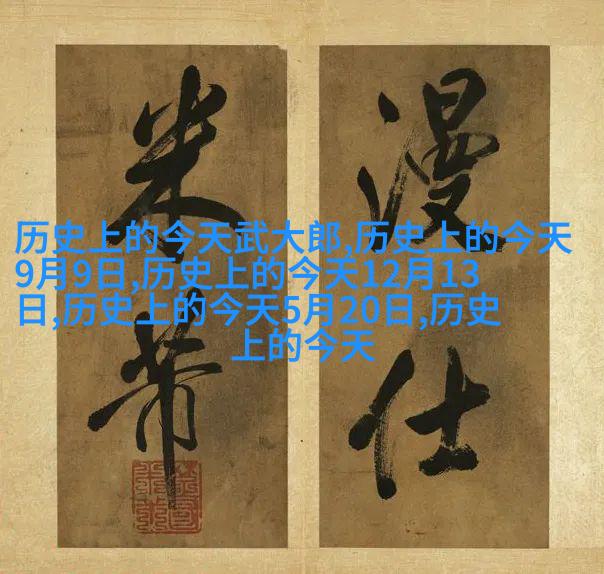 漫仕
米芾
历史上的今天武大郎,历史上的今天
9月9日,历史上的今天12月13
日,历史上的今天5月20日,历史
上的今天